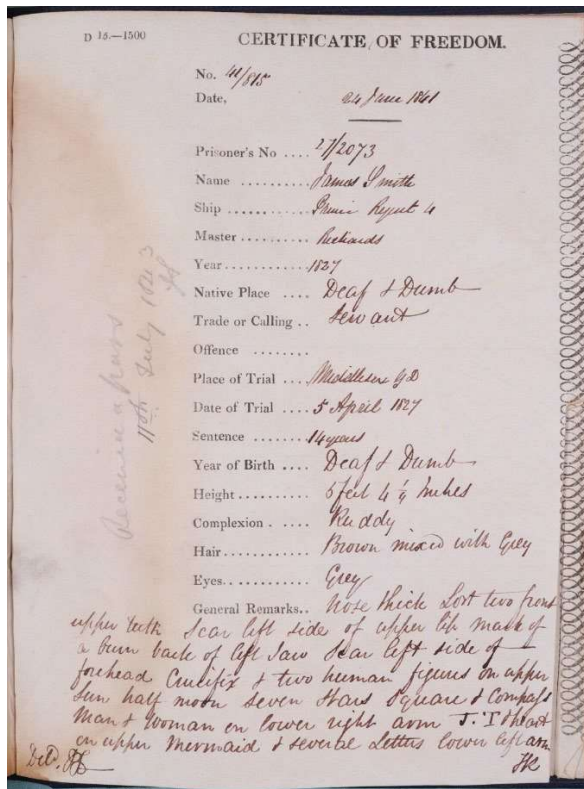 D 15.—1500
CERTIFICATE OF FREEDOM.
No. 41/815
Date, 24 June 1841
Prisoner's No .... 27/2073
Name ......... James Smith
Ship ........... Prince Regent 4
Master .......... Richards
Year............ 1827
Native Place .... Deaf & Dumb
Trade or Calling .. Servant
Offence ........
Place of Trial .... Middlesex G D
Date of Trial .... 5 April 1827
Sentence ....... 14 years
Year of Birth .... Deaf & Dumb
Height.......... 5 feet 4 ¼ Inches
Complexion ...... Ruddy
Hair............ Brown mixed with Grey
Eyes............ Grey
General Remarks.. Nose thick Lost two front
upper teeth Scar left side of upper lip mark of
a burn back of left Jaw Scar left side of
forehead Crucifix & two human figures on upper
Sun half moon seven Stars Square & Compass
Man & Woman on lower right arm J. T heart
on upper Mermaid & several Letters lower left arm
Received a pass
July 1843